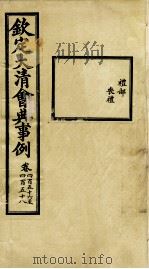 禮部
喪禮
欽定大清會典事例
卷四百五十六至
四百五十八